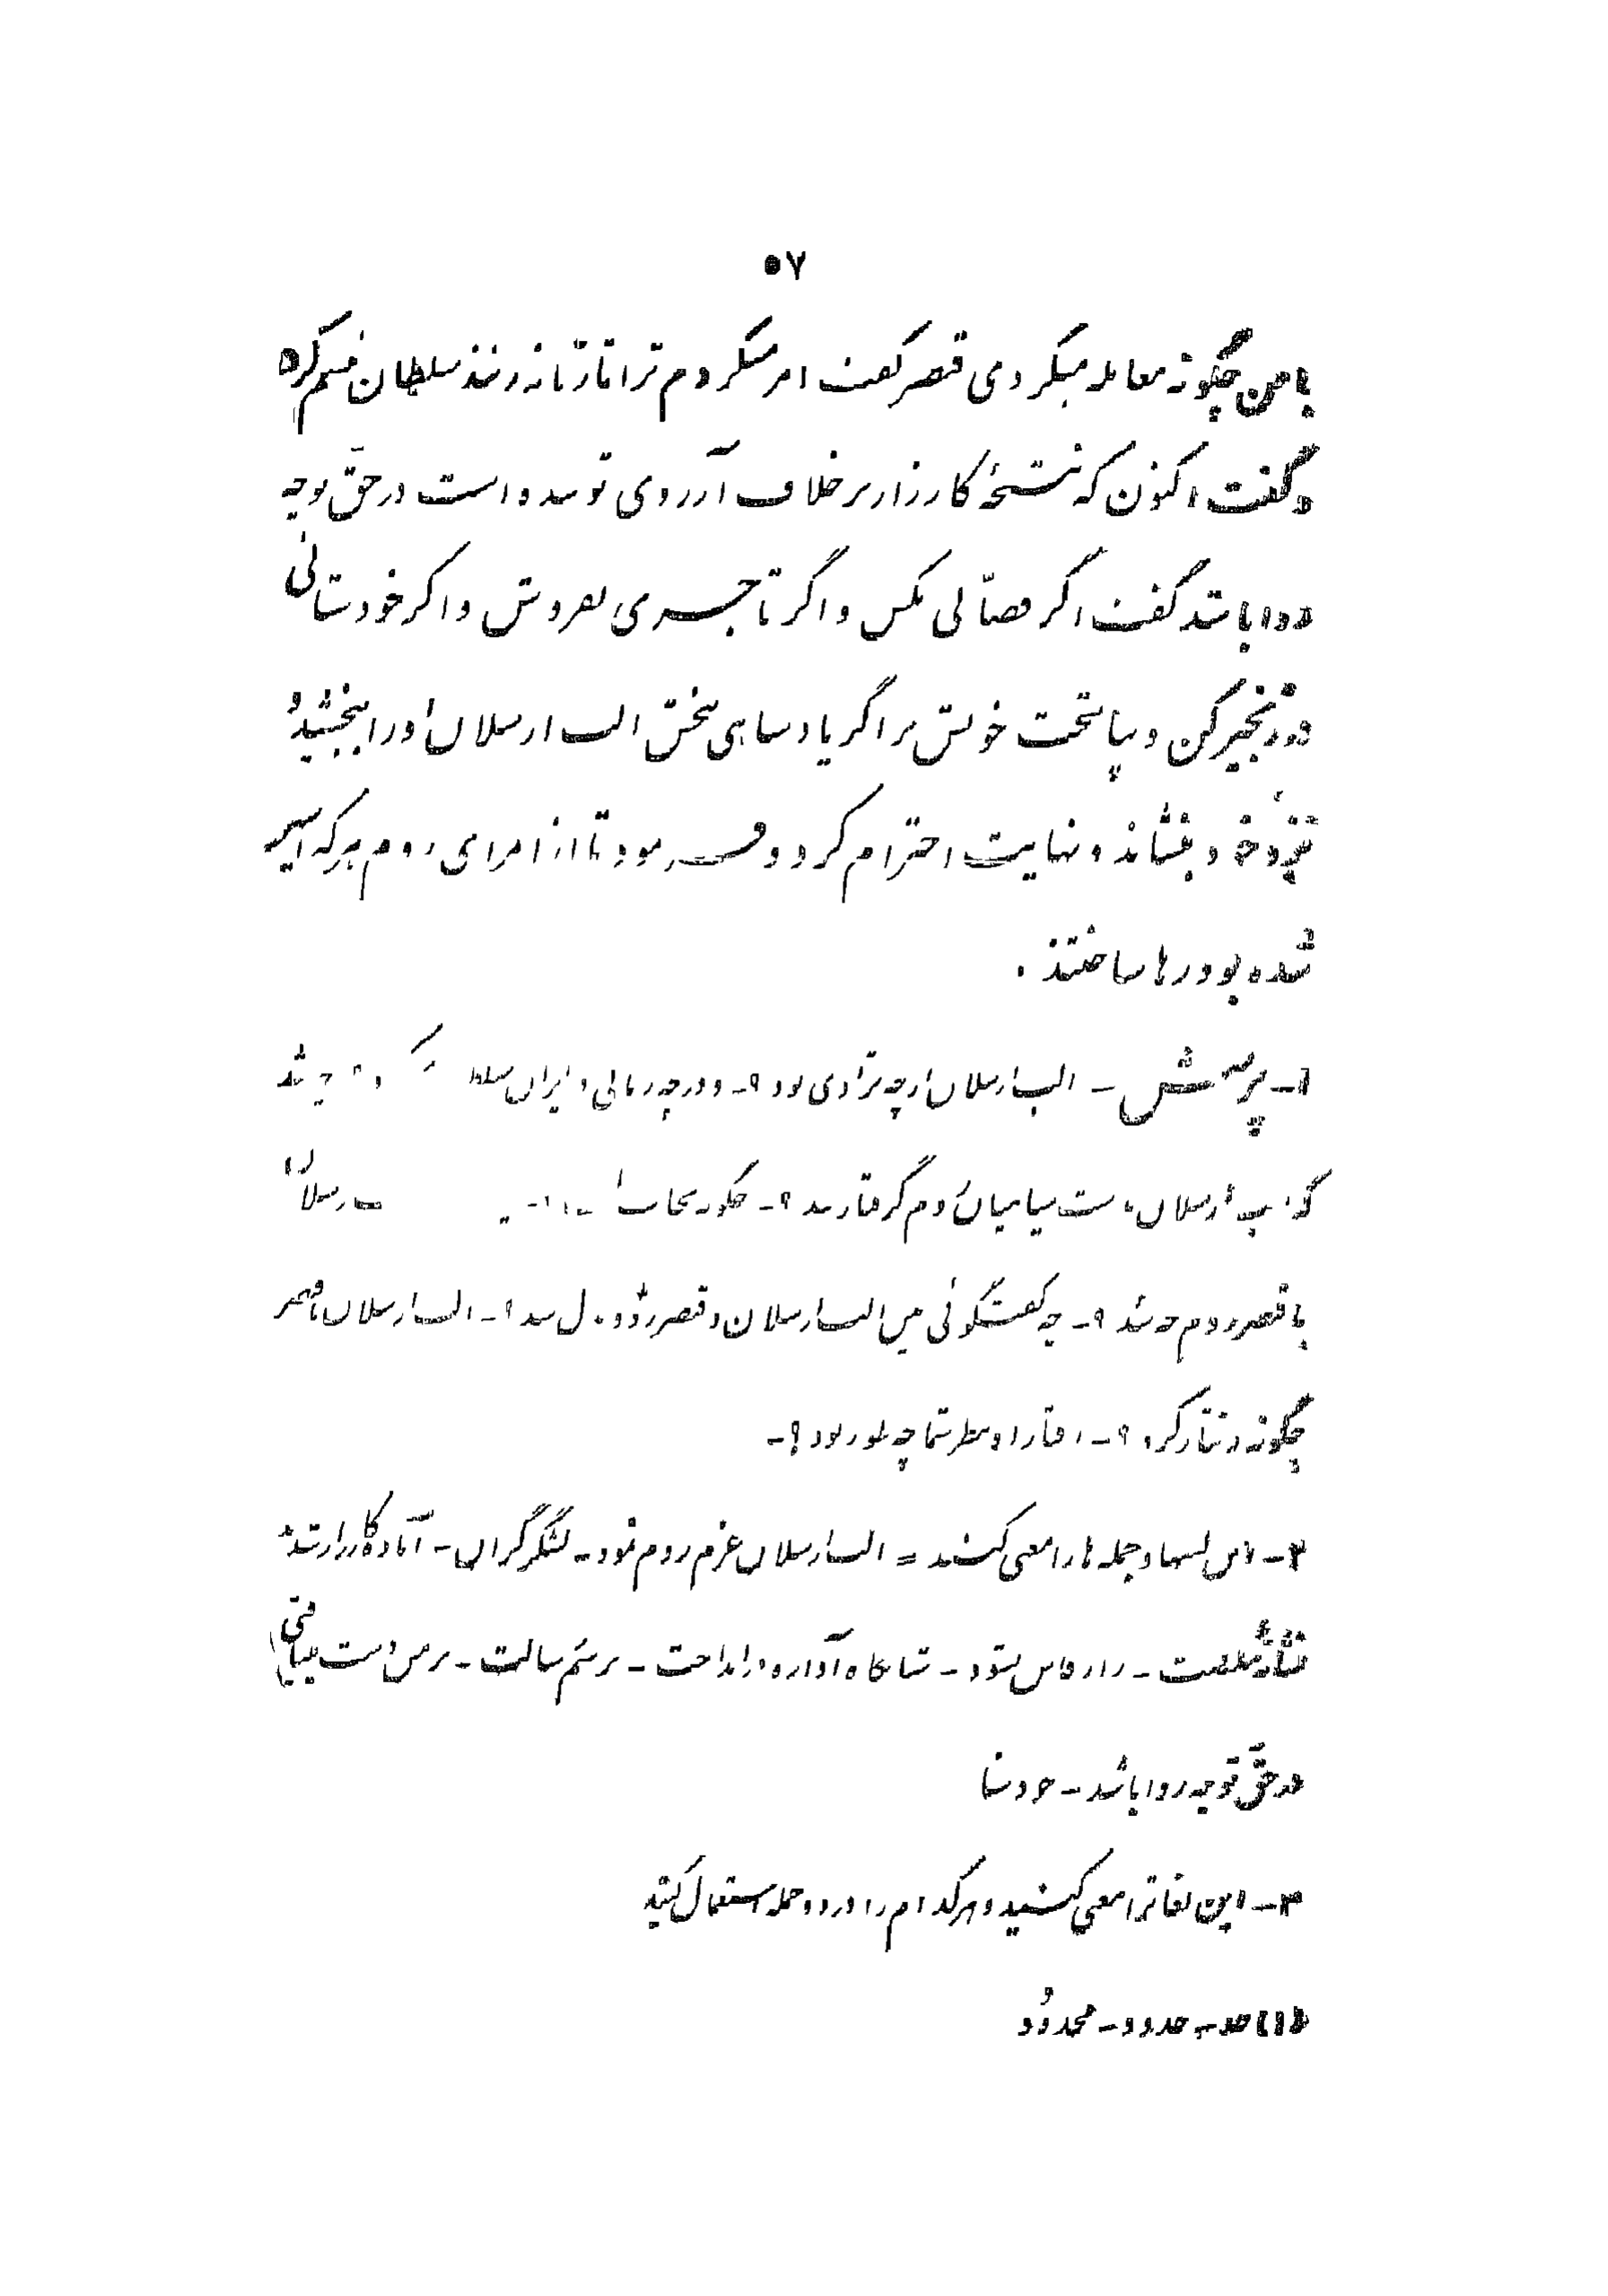 ۵۷
با من چگونه معامله میکردی قیصر گفت امر میکردم ترا تازیانه زنند سلطان تبسم کرده
و گفت اکنون که نتیجهٔ کارزار بر خلاف آرزوی تو شده است در حق تو چه
روا باشد گفت اگر قصّابی بکش و اگر تاجری بفروش و اگر خودستائی
در زنجیر کن و بپایتخت خویش بر اگر پادشاهی ببخش الب ارسلان او را ببخشید و
و بنشاند و نهایت احترام کرد و فرمود تا از امرای روم هر که اسیر
شده بود رها ساختند .
۱- پرسش - الب ارسلان از چه نژادی بود ؟- و در چه زمانی در ایران چه شد
که الب ارسلان بدست سپاهیان روم گرفتار شد ؟- چگونه نجات ارسلان
با قیصر روم چه شد ؟- چه گفتگوئی بین الب ارسلان و قیصر رد و بدل شد ؟- الب ارسلان با قیصر
چگونه رفتار کرد ؟- رفتار او بنظر شما چه طور بود ؟-
۲- این اسمها و جمله ها را معنی کنید = الب ارسلان عزم روم نمود - لشکر گران - آمادهٔ کارزار شدند
راز فاش نشود - شامگاه آوازه در انداخت - برسم رسالت - بر من دست مییافتی
در حق تو چه روا باشد - خودستا
۳- این لغاترا معنی کنید و هر کدام را در دو جمله استعمال کنید
(۱) حد - حدود - محدود